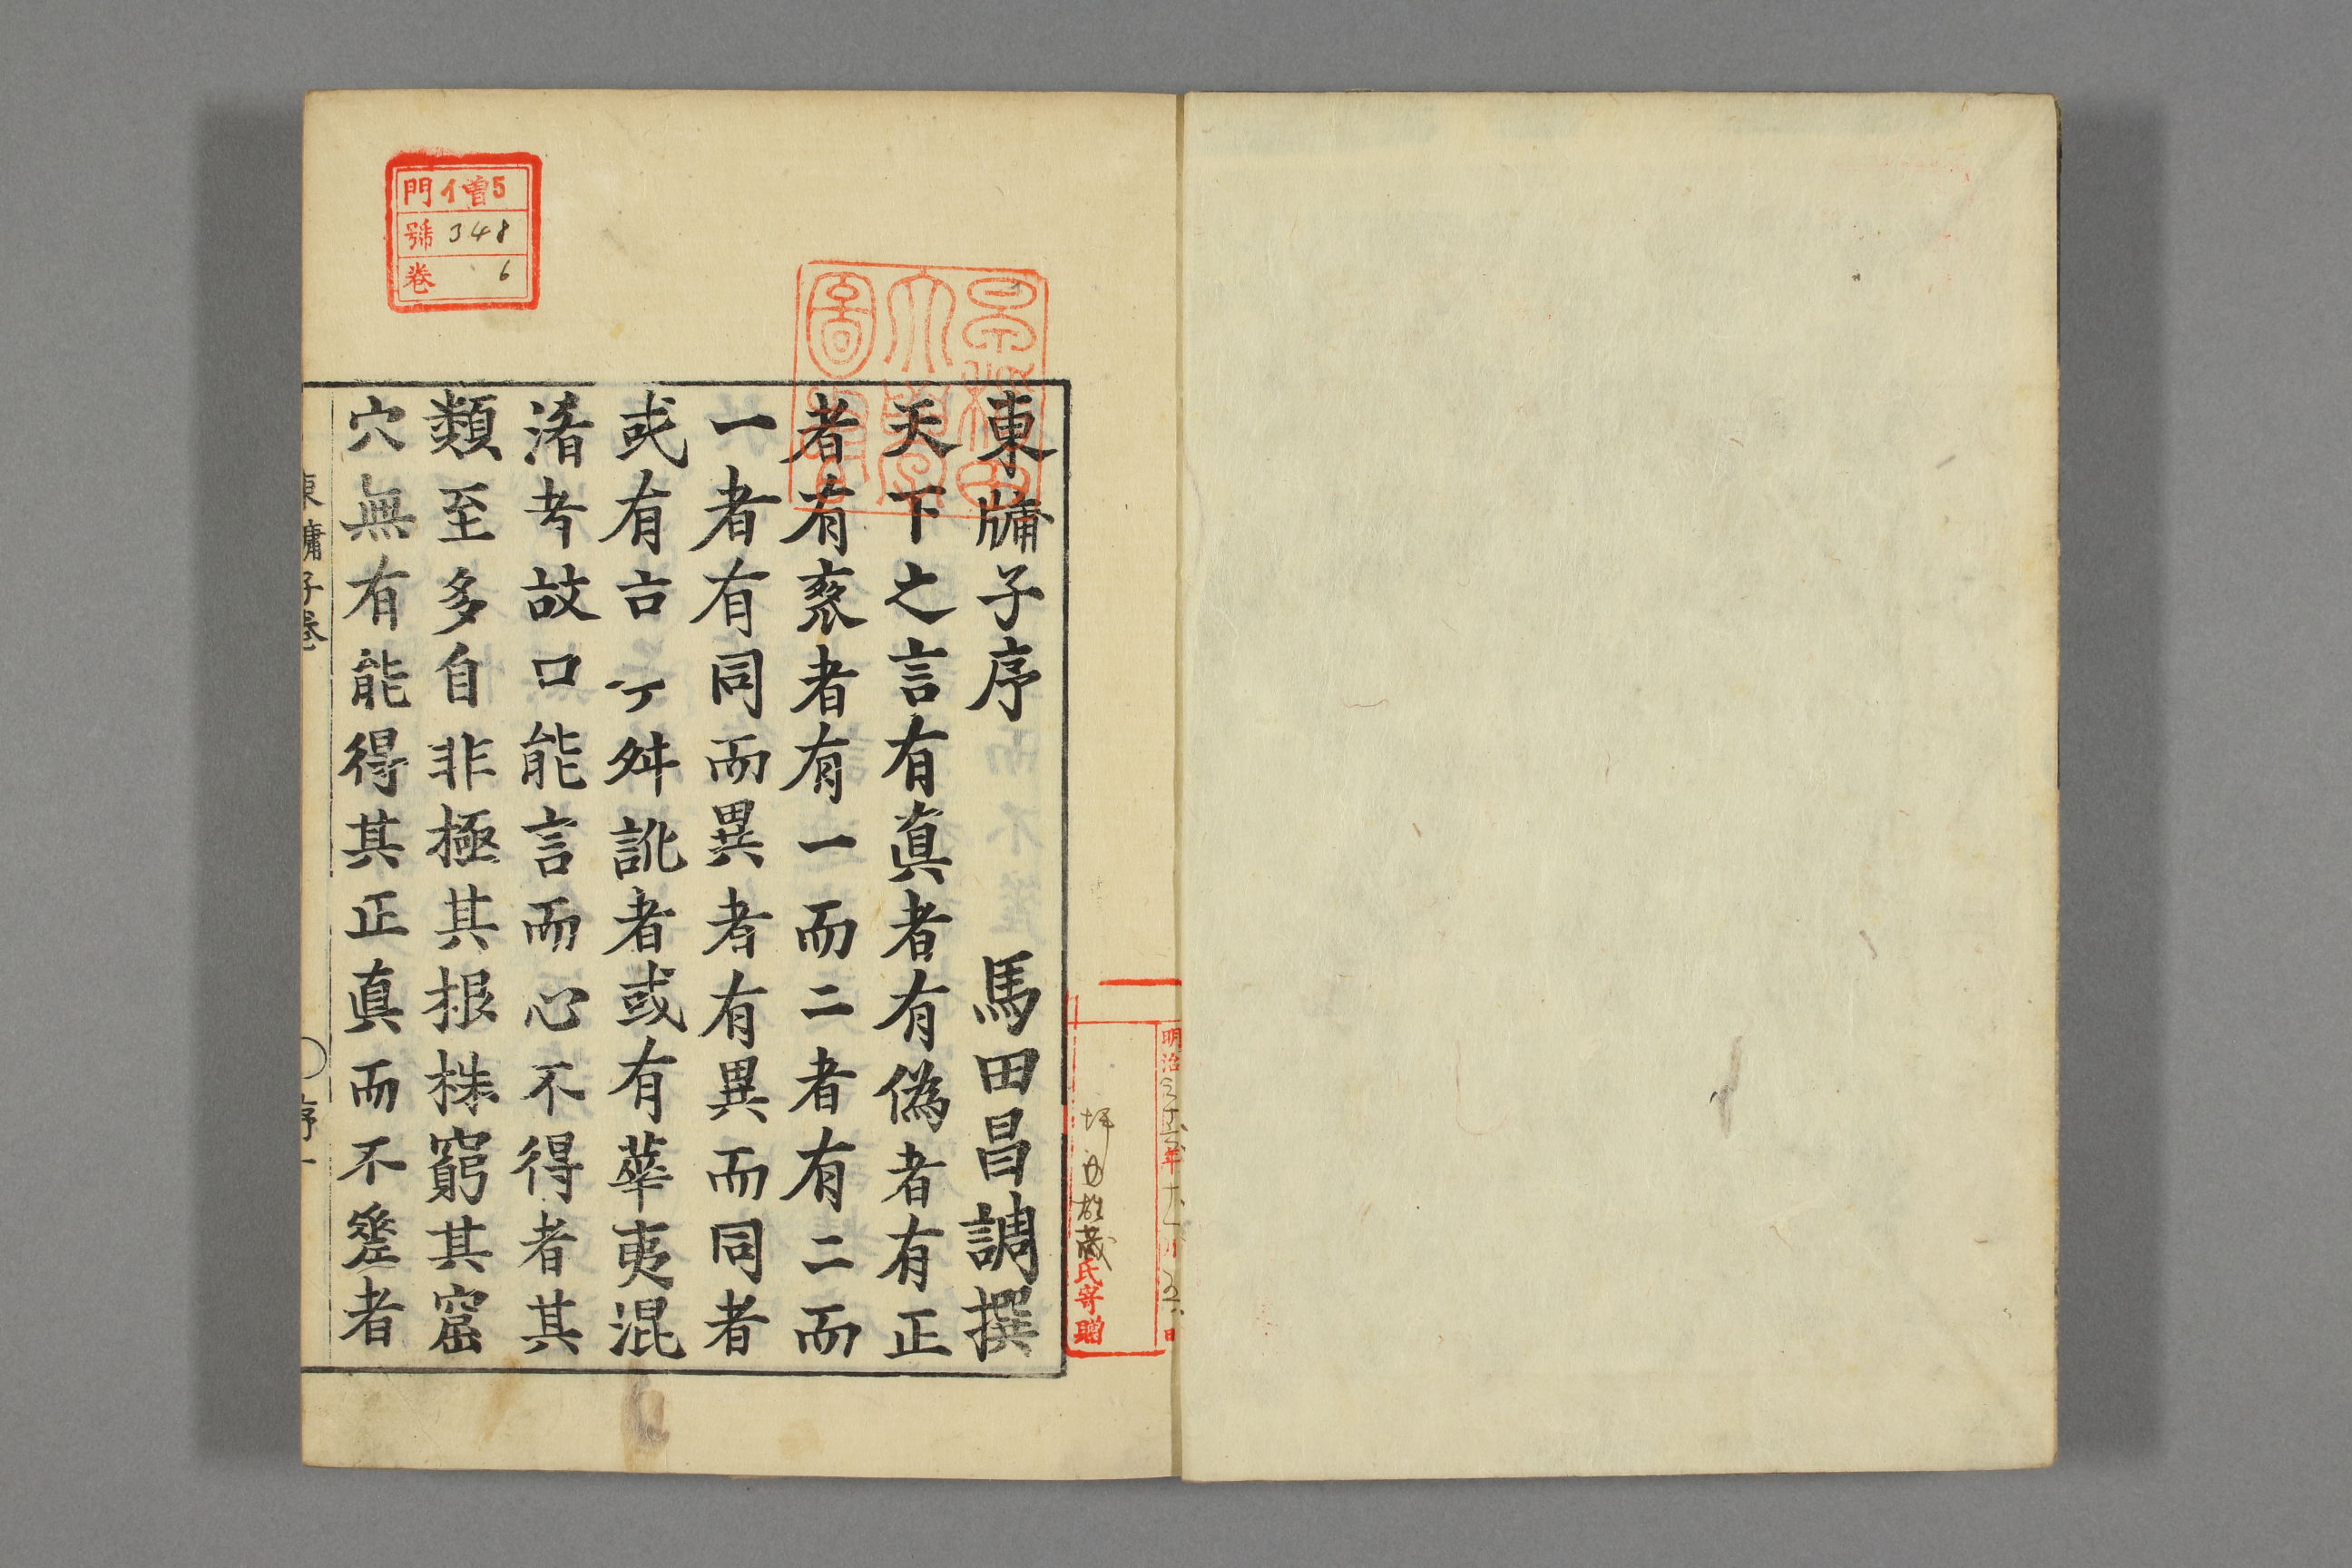 東牗子序　馬田昌調撰
天下之言有真者有偽者有正
者有衺者有一而二者有二而
一者有同而異者有異而同者
或有古今舛訛者或有華夷混
淆者故口能言而心不得者其
類至多自非極其根株窮其窟
穴無有能得其正真而不差者
東牗子卷
序一
門 イ曽5
號 348
卷 6
明治 年 月 日
氏寄贈